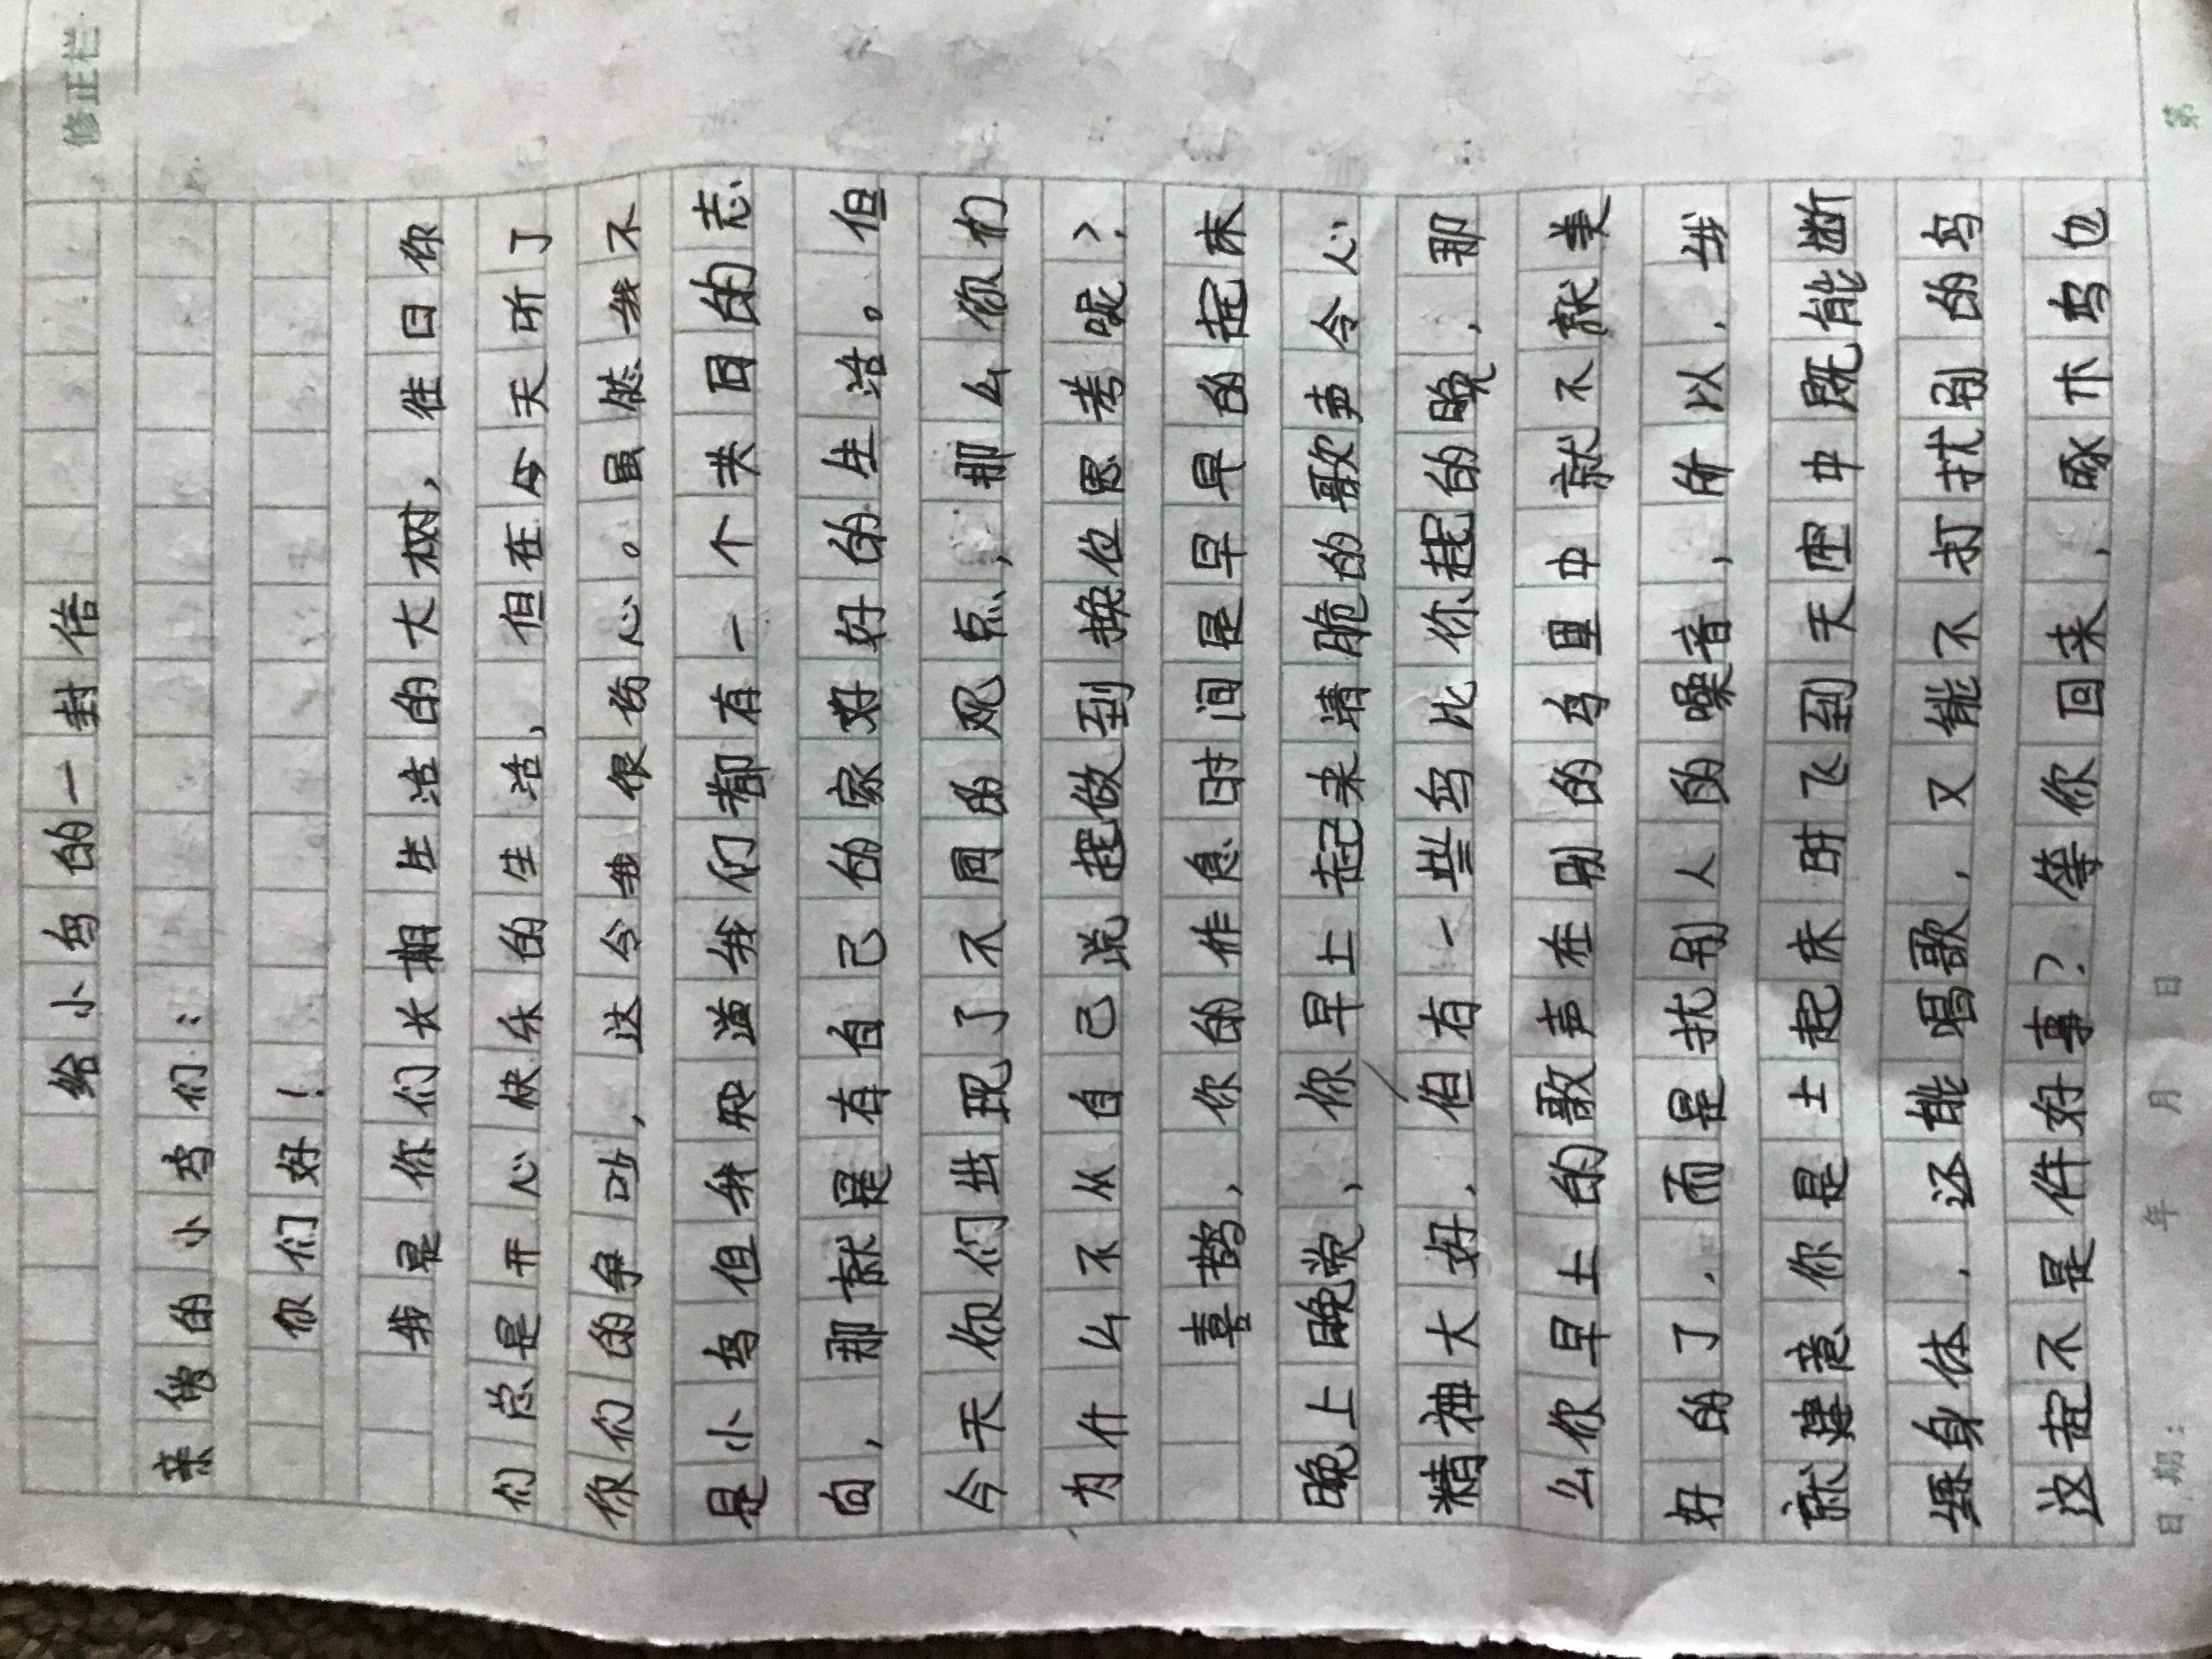 修正栏
给小鸟的一封信
亲爱的小鸟们：
你们好！
我是你们长期生活的大树，往日你
们总是开心快乐的生活，但在今天听了
你们的争吵，这令我很伤心。虽然我不
是小鸟但我知道我们都有一个共同的志
向，那就是有自己的家好好的生活。但
今天你们出现了不同的观点，那么你们
为什么不从自己说起做到换位思考呢？
喜鹊，你的作息时间是早早的起床
晚上晚睡，你早上起来清脆的歌声令人心
精神大好，但有一些鸟比你起的晚，那
么你早上的歌声在别的鸟里中就不就美
好的了，而是扰别人的噪音，所以，我
就建意你是士起床时飞到天空中既能断
练身体，还能唱歌，又能不打扰别的鸟
这起不是件好事？等你回来，啄木鸟也
日期： 年 月 日 第